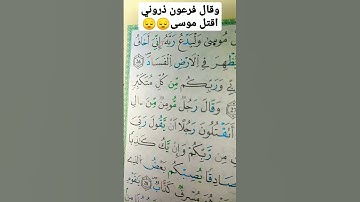 وقال فرعون ذروني
اقتل موسى😔😔
مُوسَىٰ وَلْيَدْعُ رَبَّهُ إِنِّي أَخَافُ
ظْهِرَ فِي الْأَرْضِ الْفَسَادَ ٢٦
وَرَبِّكُم مِّن كُلِّ مُتَكَبِّرٍ
٢٧ وَقَالَ رَجُلٌ مُّؤْمِنٌ مِّنْ ءَالِ
أَتَقْتُلُونَ رَجُلًا أَن يَقُولَ رَبِّيَ
مِن رَّبِّكُمْ وَإِن يَكُ كَٰذِبًا
صَادِقًا يُصِبْكُم بَعْضُ الَّذِي
هُوَ مُسْرِفٌ كَذَّابٌ ٢٨ يَٰقَوْمِ